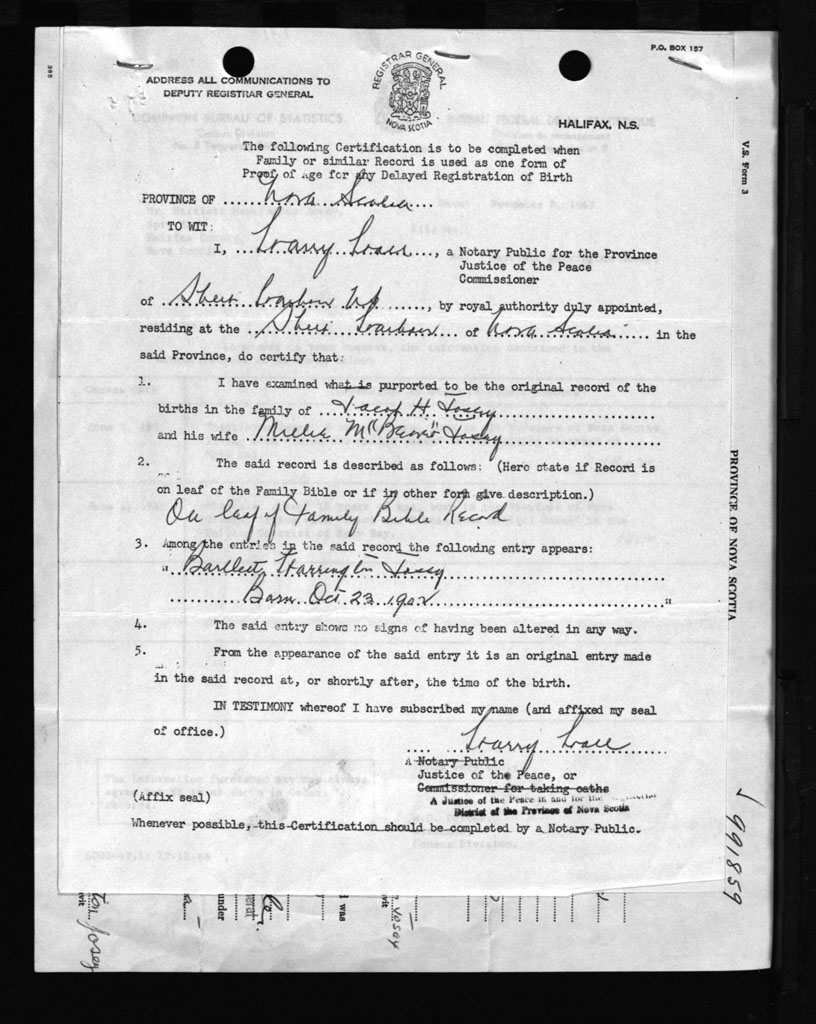 P.O. BOX 157
ADDRESS ALL COMMUNICATIONS TO
DEPUTY REGISTRAR GENERAL
REGISTRAR GENERAL
NOVA SCOTIA
HALIFAX, N.S.
V.S. Form 3
The following Certification is to be completed when
Family or similar Record is used as one form of
Proof of Age for any Delayed Registration of Birth
PROVINCE OF Nova Scotia
TO WIT:
I, Harry, a Notary Public for the Province
Justice of the Peace
Commissioner
of Harbour NS, by royal authority duly appointed,
residing at the Harbour of Nova Scotia in the
said Province, do certify that:
1. I have examined what is purported to be the original record of the
births in the family of Jacob H. Josey
and his wife Millie Josey
2. The said record is described as follows: (Here state if Record is
on leaf of the Family Bible or if in other form give description.)
On leaf of Family Bible Record
3. Among the entries in the said record the following entry appears:
" Bartlett Harrington Josey
Born Oct 23 1902 "
4. The said entry shows no signs of having been altered in any way.
5. From the appearance of the said entry it is an original entry made
in the said record at, or shortly after, the time of the birth.
IN TESTIMONY whereof I have subscribed my name (and affixed my seal
of office.)
Harry
A Notary Public
Justice of the Peace, or
Commissioner for taking oaths
A Justice of the Peace in and for the
District of the Province of Nova Scotia
(Affix seal)
Whenever possible, this Certification should be completed by a Notary Public.
PROVINCE OF NOVA SCOTIA
991859
ton Josey
under
I was
Josey